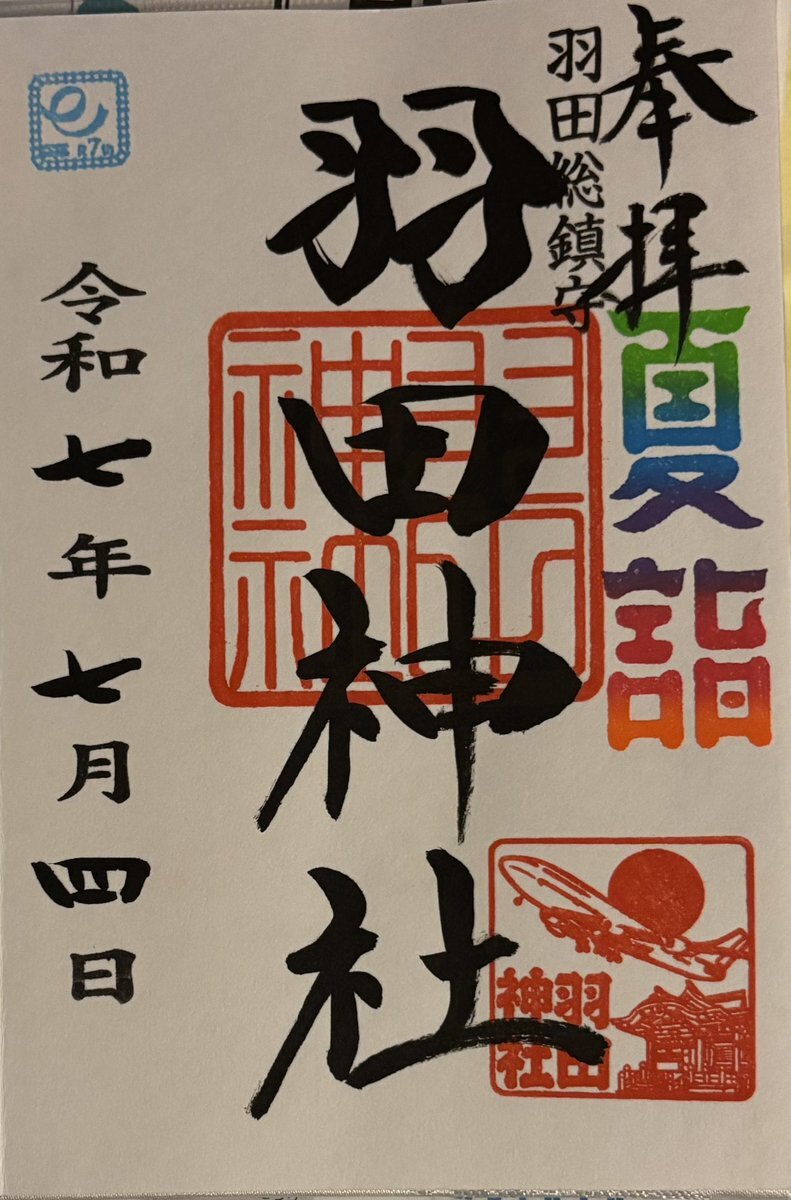 奉拝
羽田総鎮守
夏詣
羽田神社
羽田神社
羽田
神社
令和七年七月四日
7th